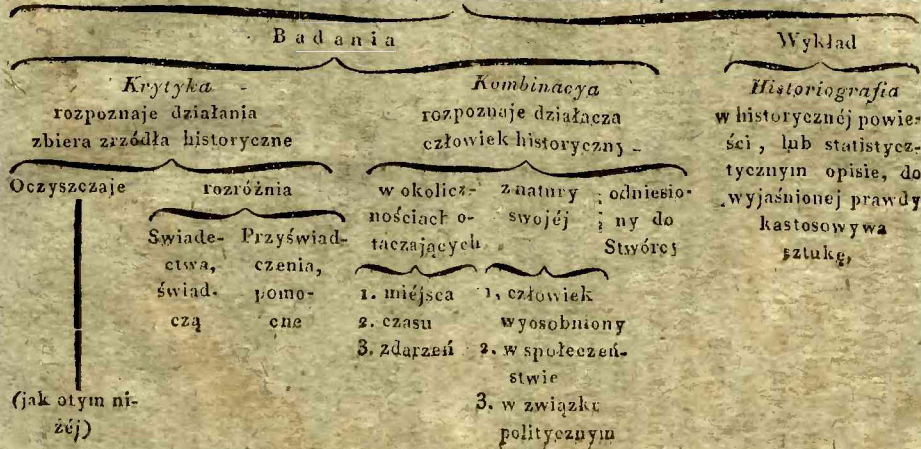 Badania
Krytyka -
rozpoznaje działania
zbiera zrzódła historyczne
Oczyszczaje
(jak otym ni-
żéj)
rozróżnia
Swiade-
ctwa,
świad-
czą
Przyświad-
czenia,
pomo-
cne
Kombinacya
rozpoznaje działacza
człowiek historyczny -
w okolicz-
nościach o-
taczających
1. miéjsca
2. czasu
3. zdarzeń
z natury
swojéj
1, człowiek
wyosobniony
2. w społeczeń-
stwie
3. w związku
politycznym
odniesio-
ny do
Stwórcy
Wykład
Historiografia
w historycznéj powie-
ści, lub statistycz-
tycznym opisie, do
wyjaśnionej prawdy
kastosowywa
sztukę,